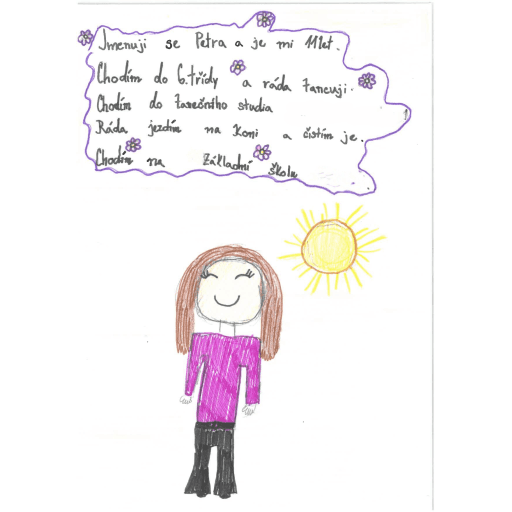 Jmenuji se Petra a je mi 11 let.
Chodím do 6. třídy a ráda tancuji.
Chodím do tanečního studia
Ráda jezdím na koni a čistím je.
Chodím na Základní školu